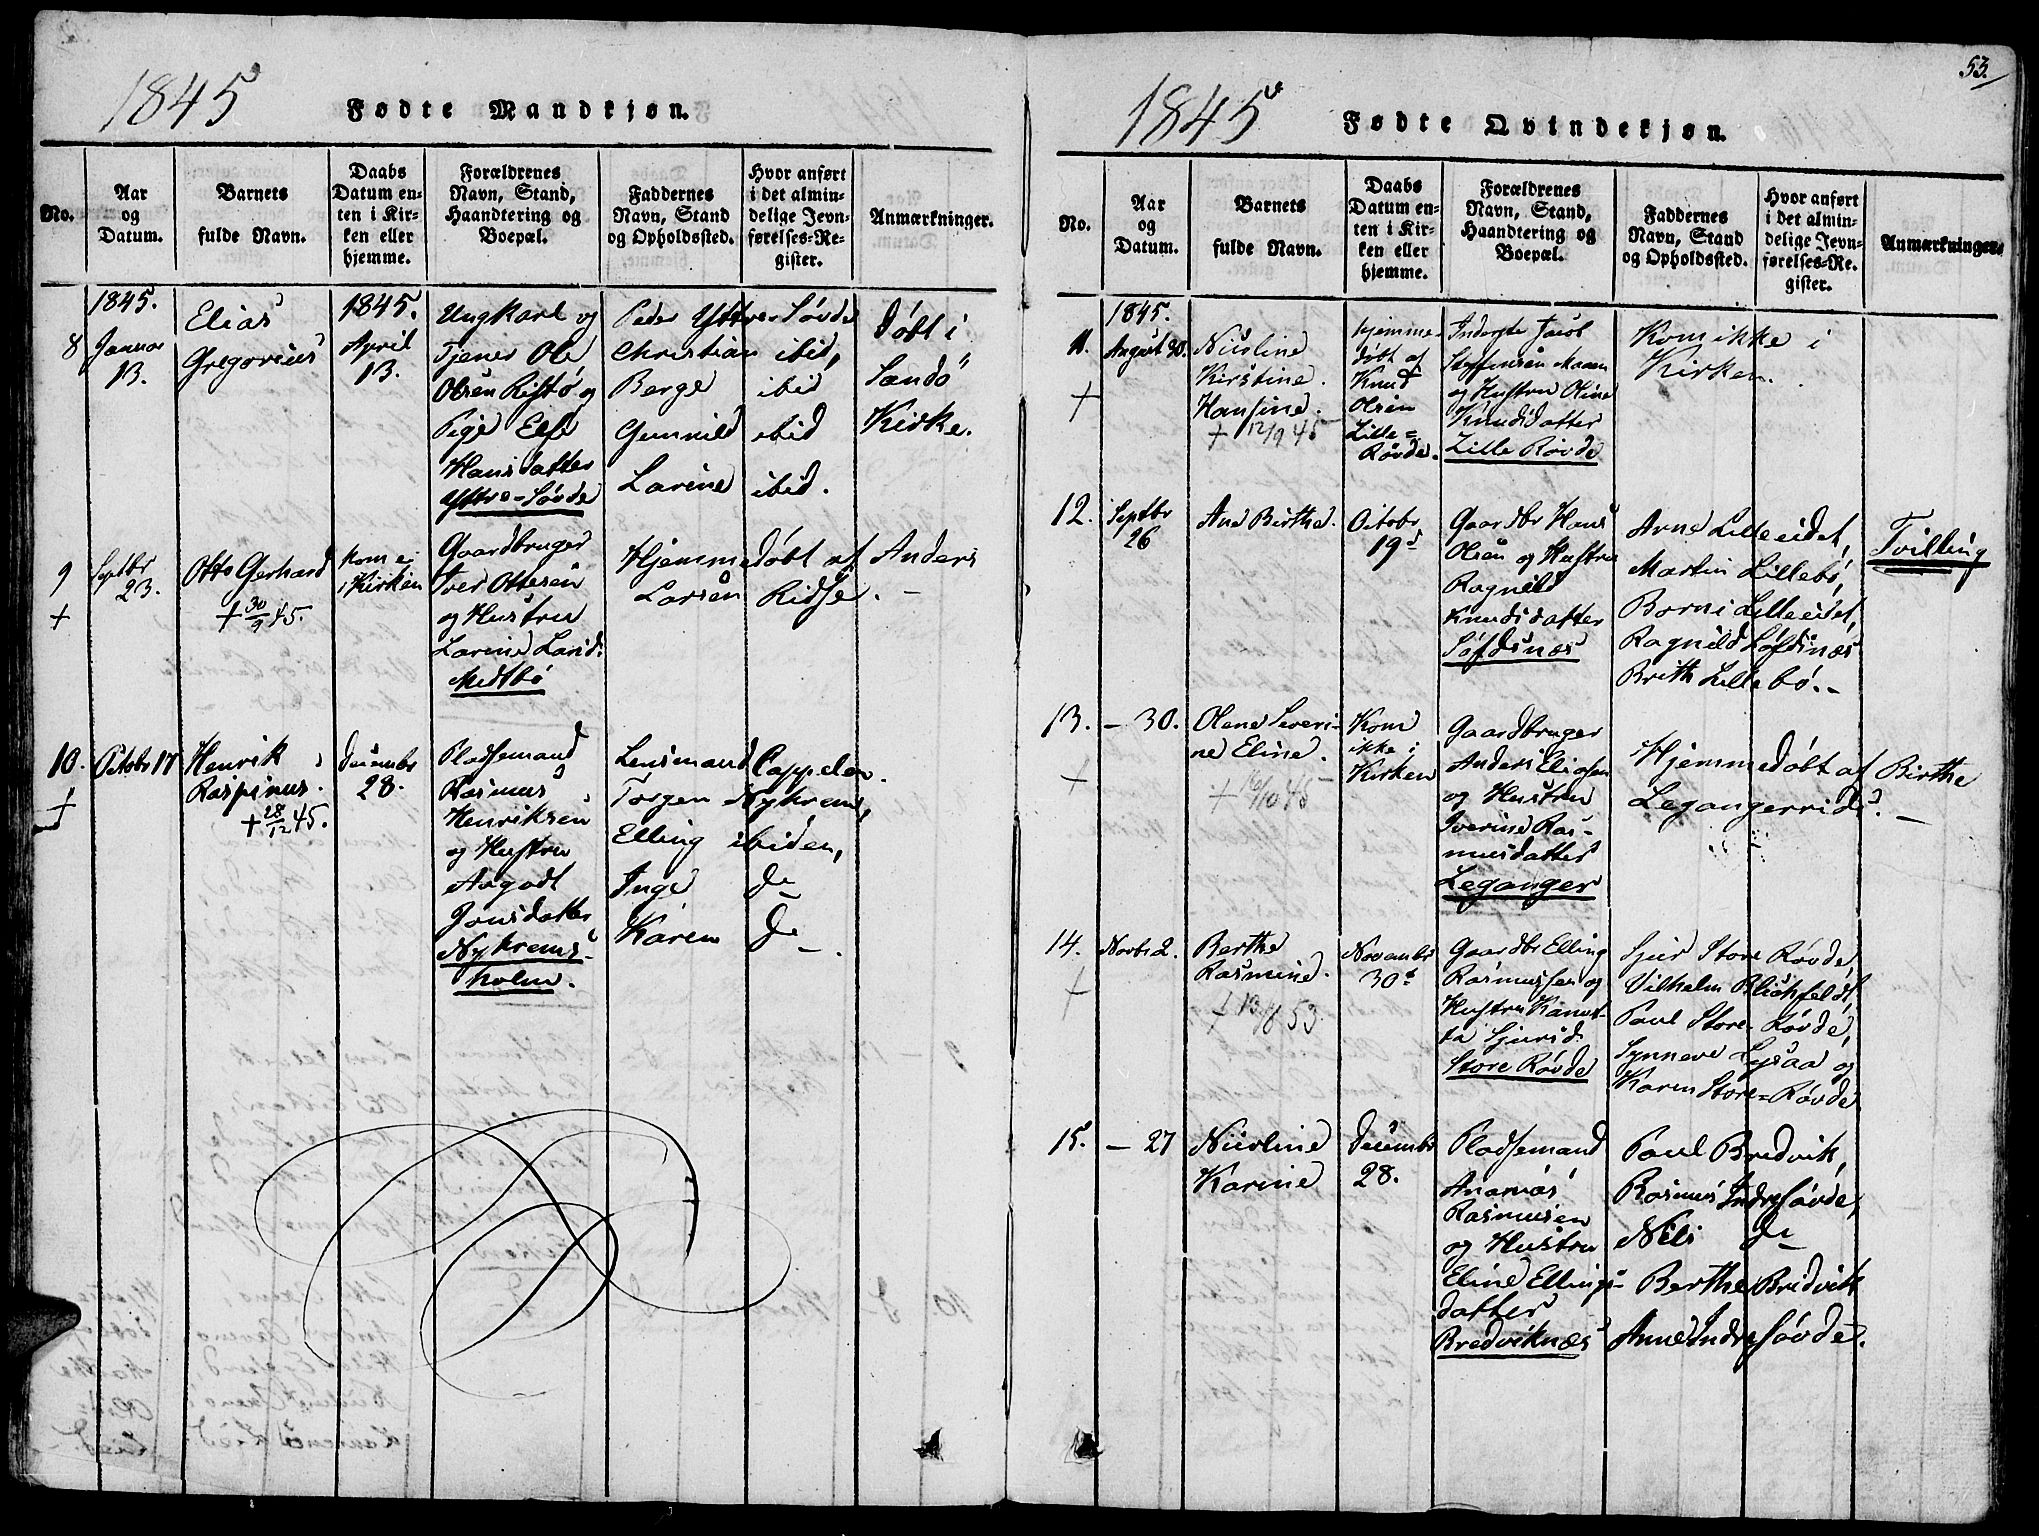 1845
Fødte Mandkjøn.
No.
Aar
og
Datum.
Barnets
fulde Navn.
Daabs
Datum en-
ten i Kir-
ken eller
hjemme.
Forældrenes
Navn, Stand,
Haandtering og
Boepæl.
Faddernes
Navn, Stand
og Opholdssted.
Hvor anført
i det almin-
delige Jevn-
førelses-Re-
gister.
Anmærkninger.
8
1845.
Januar
13.
Elias
Gregorius
1845.
April
13.
Ungkarl og
Tjener Ole
Olsen Ristø og
Pige Else
Hansdatter
Yttre-Søvde
Peder Yttre Søvde
Christian ibid,
Berge ibid
Gunnild ibid
Larine ibid.
Døbt i
Sandø
Kirke.
9
+
Septbr
23.
Otto Gerhard
+ 30/9 45.
Kom ej
i Kirken
Gaardbruger
Iver Ottesen
og Hustru
Larine Larsd:
Medtbø
Hjemmedøbt af Anders
Larsen Ridse. —
10.
+
Octobr 17
Henrik
Raspinus.
+ 28/12 45.
Decembr
28.
Pladsemand
Rasmus
Henriksen
og Hustru
Aagodt
Jonsdatter
Nykrems-
holm.
Lensmand Cappelen.
Torgen Nykrem,
Elling ibiden,
Inge do
Karen do.
53.
1845
Fødte Qvindekjøn.
No.
Aar
og
Datum.
Barnets
fulde Navn.
Daabs
Datum en-
ten i Kir-
ken eller
hjemme.
Forældrenes
Navn, Stand,
Haandtering og
Boepæl.
Faddernes
Navn, Stand
og Opholdssted.
Hvor anført
i det almin-
delige Jevn-
førelses-Re-
gister.
Anmærkninger.
11.
+
1845.
August 30.
Nicoline
Kirstine
Hansine.
+ 12/9 45
Hjemme-
døbt af
Knud
Olsen
Lille=
Røvde.
Inderste Jacob
Steffensen Maaen
og Hustru Oline
Knudsdatter
Lille Røvde
Kom ikke i
Kirken.
12.
Septbr
26
Ane Birthe.
Octobr
19de
Gaardbr Hans
Olsen og Hustru
Ragnild
Knudsdatter
Søfdsnæs
Arne Lilleeidet,
Martin Lillebø,
Borni Lilleeidet,
Ragnild Søfdsnæs
Brith Lillebø. —
Tvilling
13.
+
— 30.
Olene Severi-
ne Eline.
+ 16/10 45
Kom
ikke i
Kirken
Gaardbruger
Anders Eliasen
og Hustru
Iverine Ras-
musdatter
Leganger
Hjemmedøbt af Birthe
Legangerride. —
14.
+
Novbr 2.
Berthe
Rasmine.
+ 13/8 53.
Novembr
30te
Gaardbr Elling
Rasmussen og
Hustru Kanut-
ta Sjursd.
Store Røvde
Sjur Store Røvde,
Vilhelm Blichfeldt,
Paul Store-Røvde,
Synneve Lysaa og
Karen Store=Røvde
15.
— 27
Nicoline
Karine
Decembr
28.
Pladsemand
Ananias
Rasmusen
og Hustru
Eline Ellings-
datter
Bredviknæs
Paul Bredvik,
Rasmus Indresøvde,
Nils do
Berthe Bredvik
Anne Indresøvde.